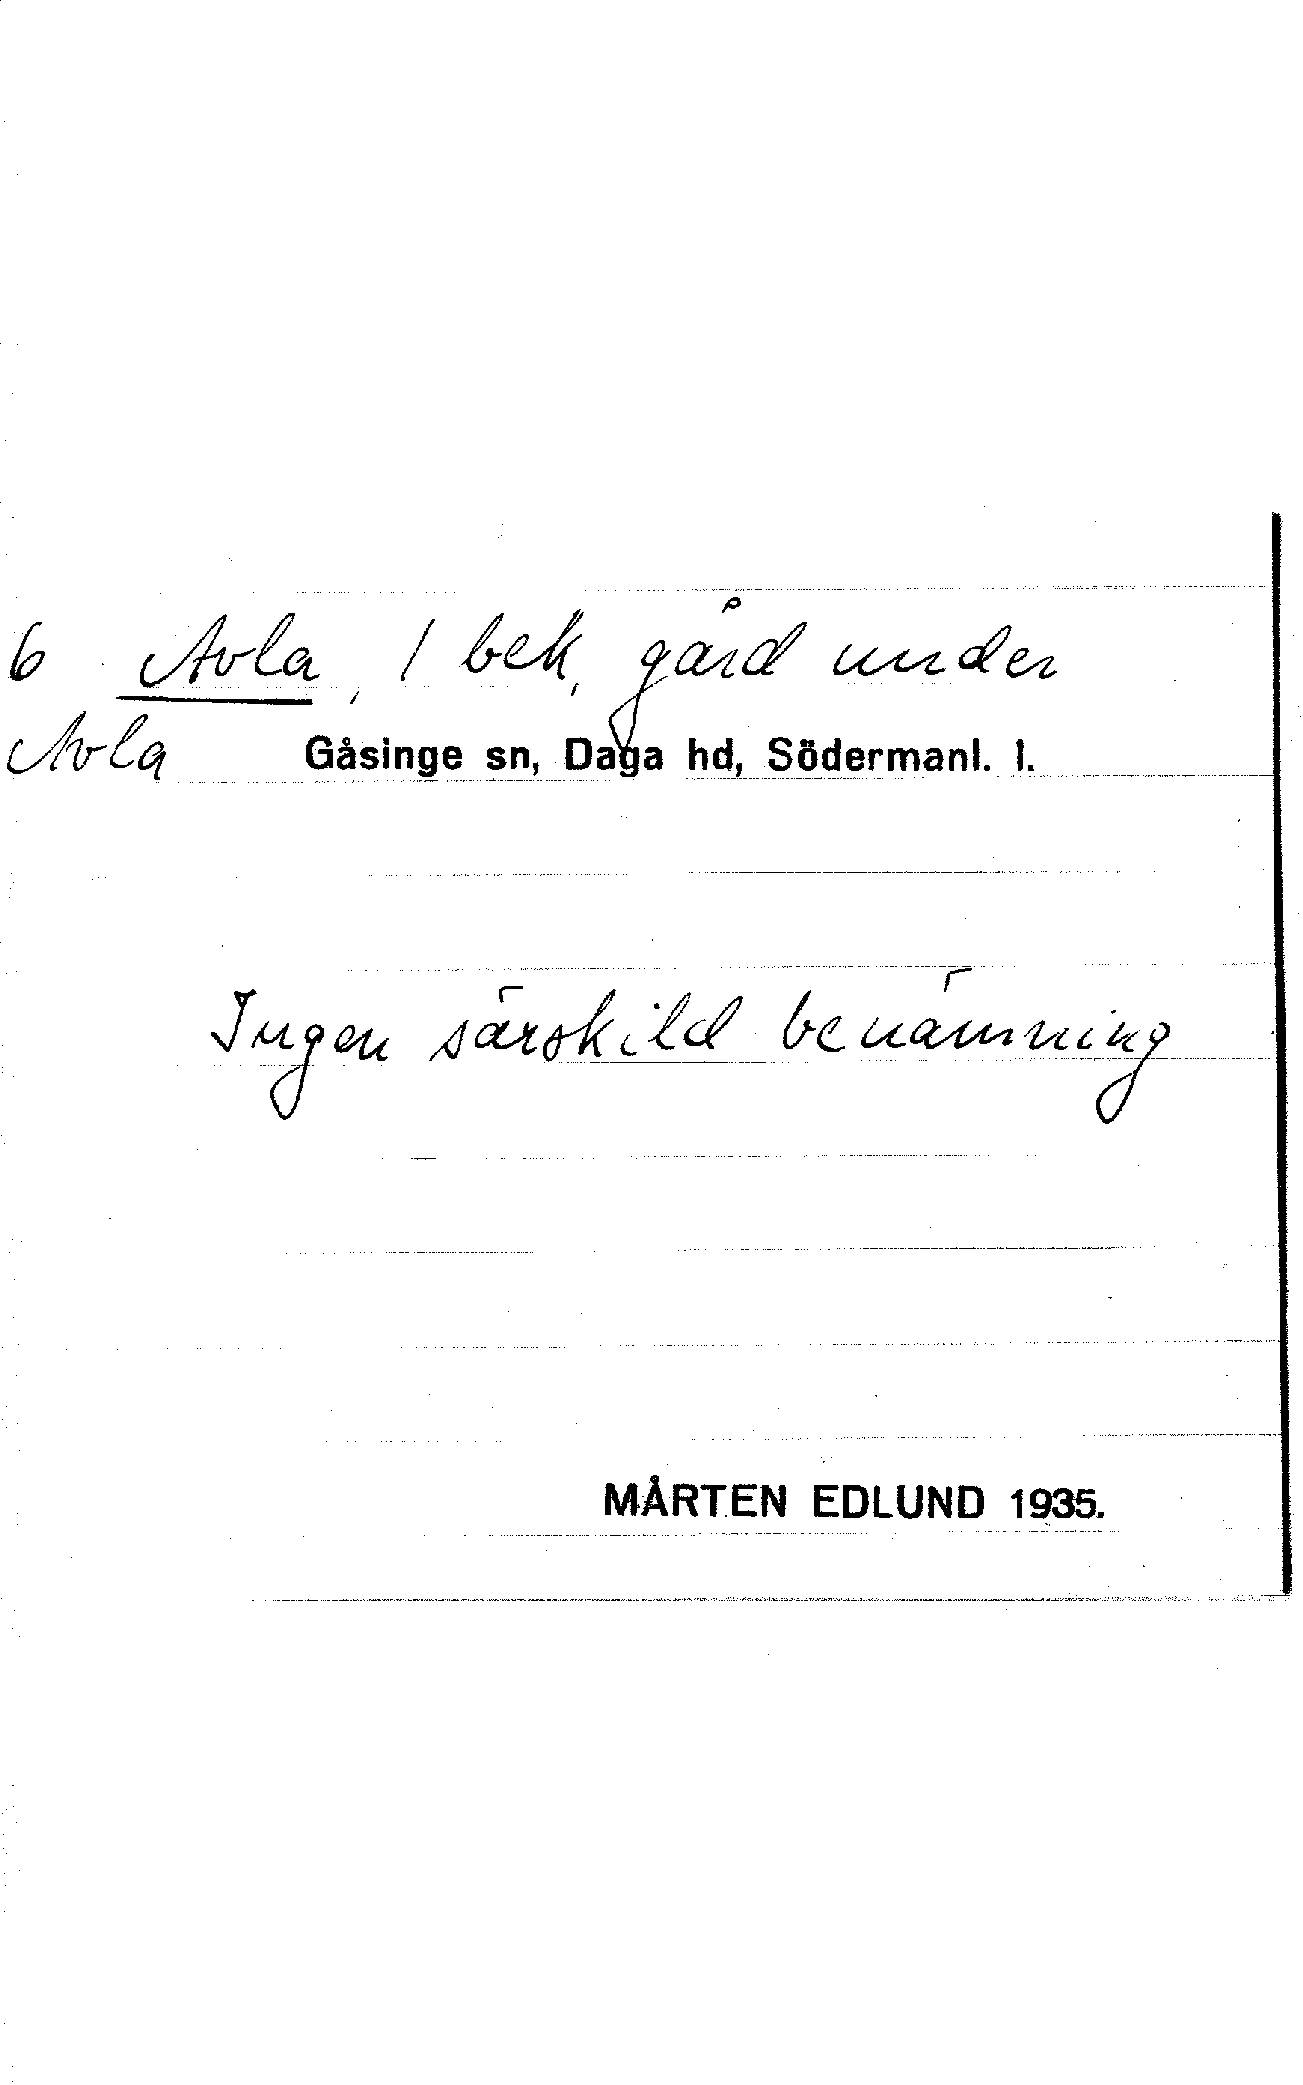 6 Avla, 1 bek, gård under
Avla Gåsinge sn, Daga hd, Södermanl. l.
Ingen särskild benämning
MÅRTEN EDLUND 1935.